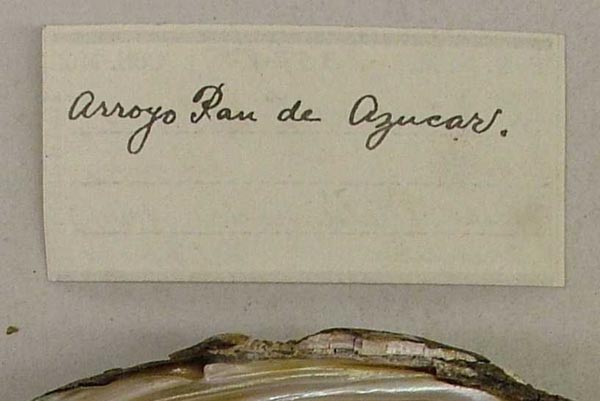 Arroyo Pan de Azucar.